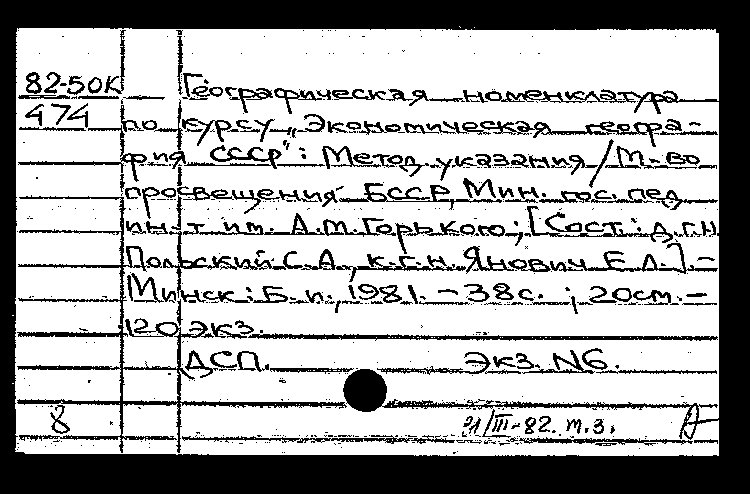 82-50К Географическая номенклатура
474 по курсу „Экономическая геогра-
фия СССР": Метод. указания / М-во
просвещения БССР, Мин. гос. пед.
ин-т им. А.М.Горького; [Сост.: д.г.н.
Польский С.А., к.г.н. Янович Е.Л.].-
Минск: Б.и., 1981. - 38с. ; 20см.-
120 экз.
ДСП. Экз. N6.
8 /III-82. т.з.